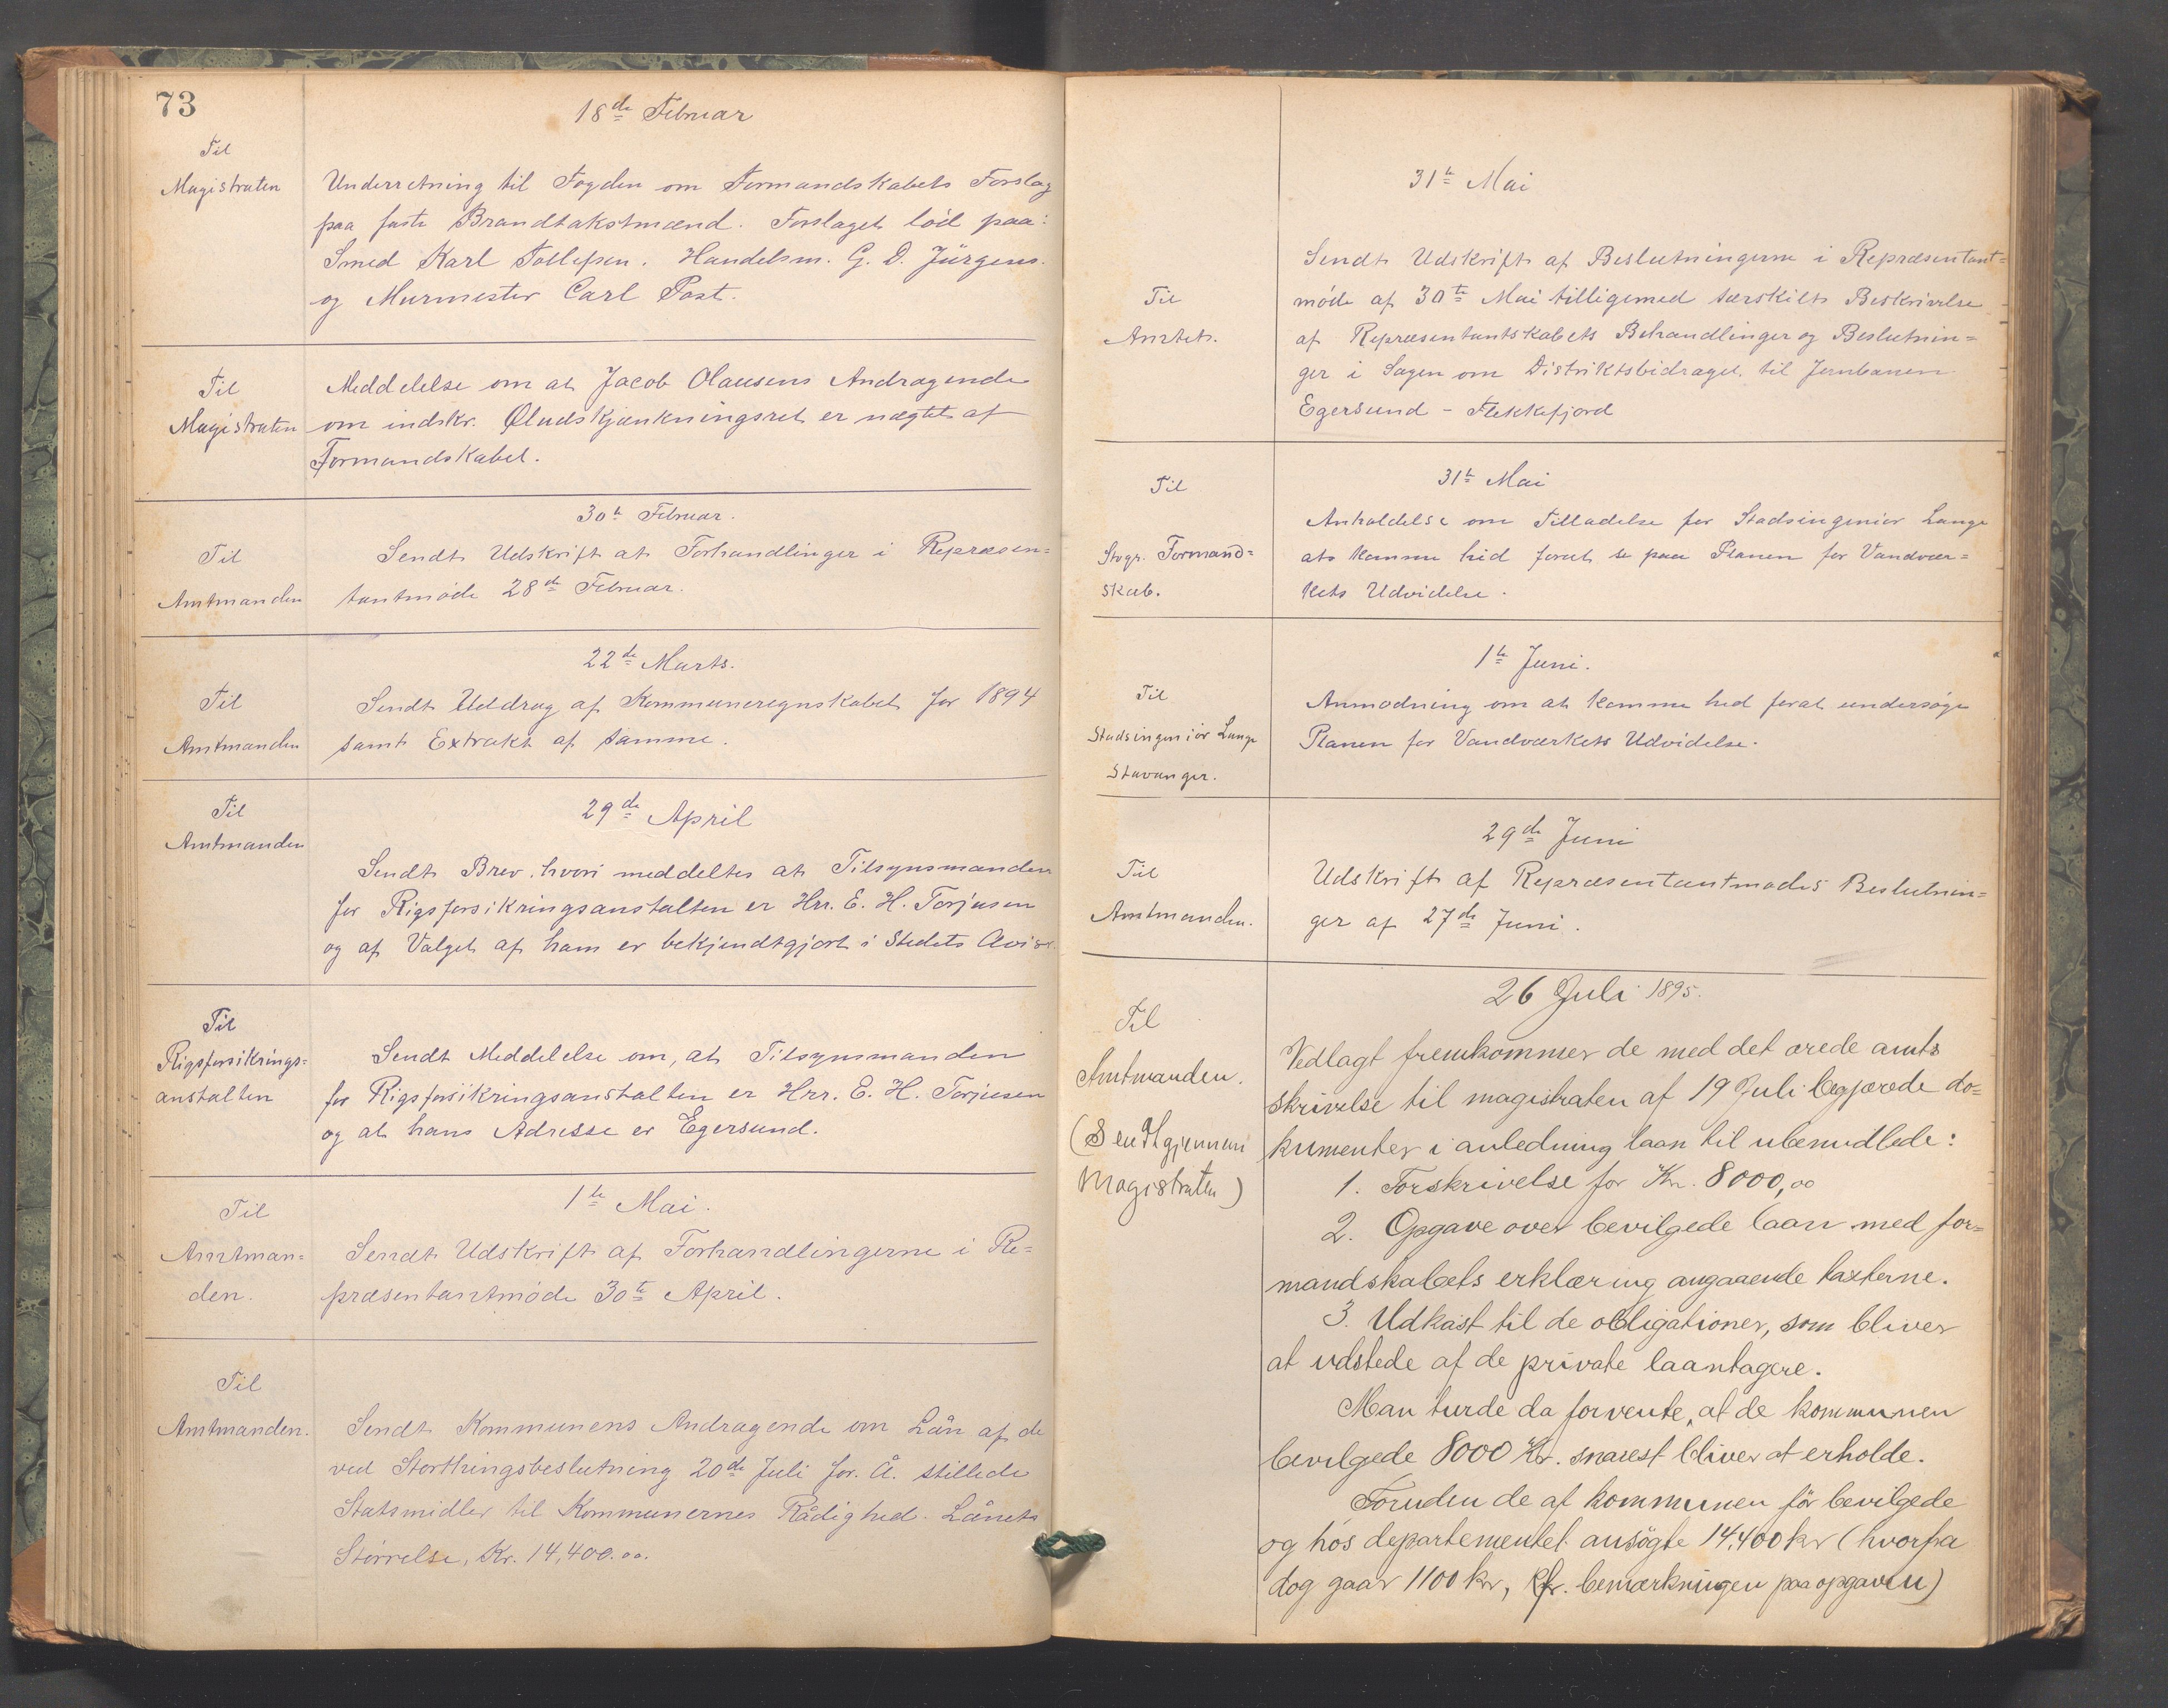 73
18de Februar
Til
Magistraten
Underretning til Fogden om Formandskabets Forslag
paa faste Brandtakstmænd. Forslaget löd paa:
Smed Karl Tollefsen. Handelsm. G. D. Jürgens.
og Murmester Carl Post.
Til
Magistraten
Meddelelse om at Jacob Olausens Andragende
om indskr. Øludskjænkningsret er nægtet af
Formandskabet.
30te Februar.
Til
Amtmanden
Sendt Udskrift at Forhandlinger i Repræsen=
tantmöde 28de Februar.
22de Marts.
Til
Amtmanden
Sendt Uddrag af Kommuneregnskabet for 1894
samt Extrakt af samme.
29de April
Til
Amtmanden
Sendt Brev, hvori meddeltes at Tilsynsmanden
for Rigsforsikringsanstalten er Hrr. E. H. Torjusen
og af Valget af ham er bekjendtgjort i Stedets Avis.
Til
Rigsforsikrings=
anstalten
Sendt Meddelelse om, at Tilsynsmanden
for Rigsforsikringsanstalten er Hrr. E. H. Torjusen
og at hans Adresse er Egersund.
1te Mai.
Til
Amtman=
den.
Sendt Udskrift af Forhandlingerne i Re=
præsentantmöde 30te April.
Til
Amtmanden.
Sendt Kommunens Andragende om Lån af de
ved Storthingsbeslutning 20de Juli for. Å. stillede
Statsmidler til Kommunernes Rådighed. Lånets
Störrelse, Kr. 14,400.00.
31te Mai
Til
Amtet.
Sendt Udskrift af Beslutningerne i Repræsentant=
möde af 30te Mai tilligemed særskilt Beskrivelse
af Repræsentantskabets Behandlinger og Beslutnin=
ger i Sagen om Distriktsbidraget til Jernbanen
Egersund - Flekkefjord
31te Mai
Til
Stvgr. Formand=
skab.
Anholdelse om Tilladelse for Stadsingeniör Lange
at komme hid forat se paa Planen for Vandvær=
kets Udvidelse.
1te Juni.
Til
Stadsingeniör Lange
Stavanger.
Anmodning om at komme hid forat undersöge
Planen for Vandværkets Udvidelse.
29de Juni
Til
Amtmanden.
Udskrift af Repræsentantmödes Beslutnin=
ger af 27de Juni.
26 Juli 1895.
Til
Amtmanden.
(Sendt gjennem
Magistraten)
Vedlagt fremkommer de med det ærede amts
skrivelse til magistraten af 19 Juli begjærede do=
kumenter i anledning laan til ubemidlede:
1. Forskrivelse for Kr. 8000,00
2. Opgave over bevilgede laan med for=
mandskabets erklæring angaaende taxterne.
3. Udkast til de obligationer, som bliver
at udstede af de private laantagere.
Man turde da forvente, at de kommunen
bevilgede 8000 Kr. snarest bliver at erholde.
Foruden de af kommunen för bevilgede
og hos departementet ansögte 14,400 kr (hvorfra
dog gaar 1100 kr, kfr. bemærkningen paa opgaven)